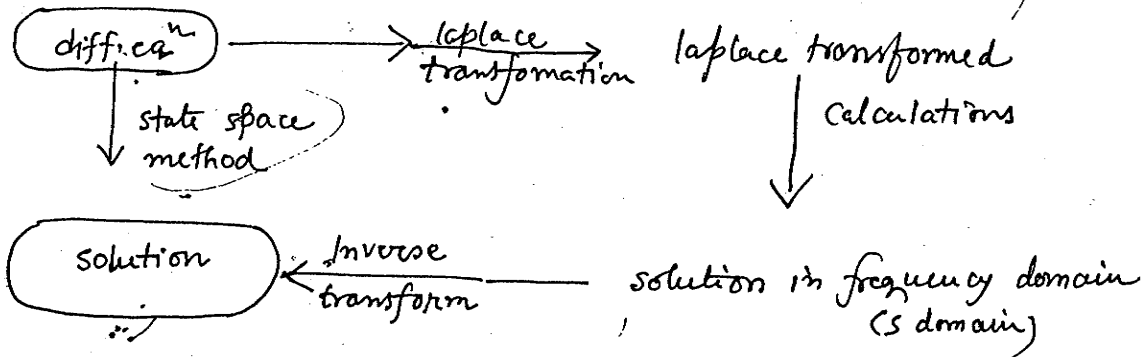 diffi.eqⁿ
laplace
transfomation
laplace transformed
calculations
state space
method
solution
Inverse
transform
solution in frequency domain
(s domain)